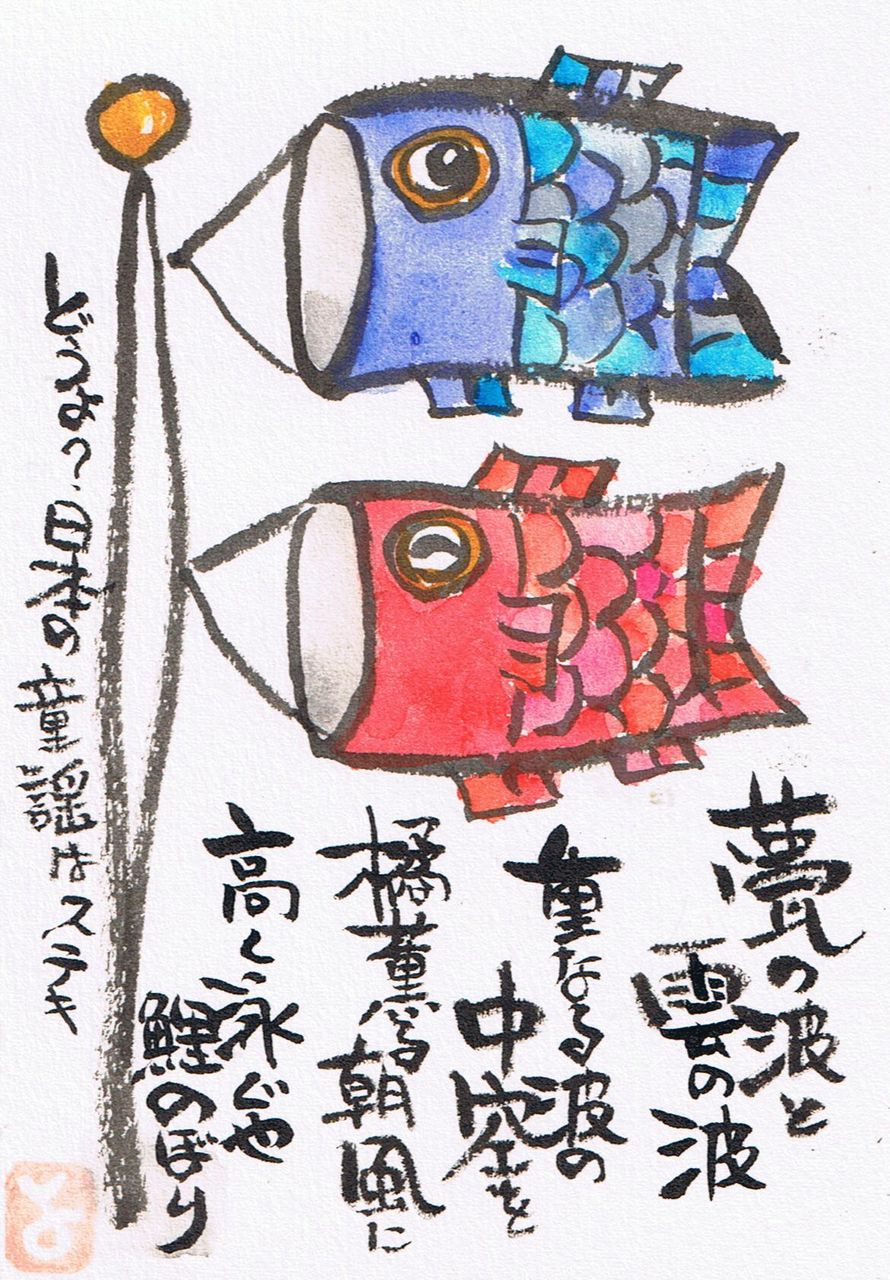 甍の波と
雲の波
重なる波の
中空を
橘薫る朝風に
高く泳ぐや
鯉のぼり
どうよ?日本の童謡はステキ
と